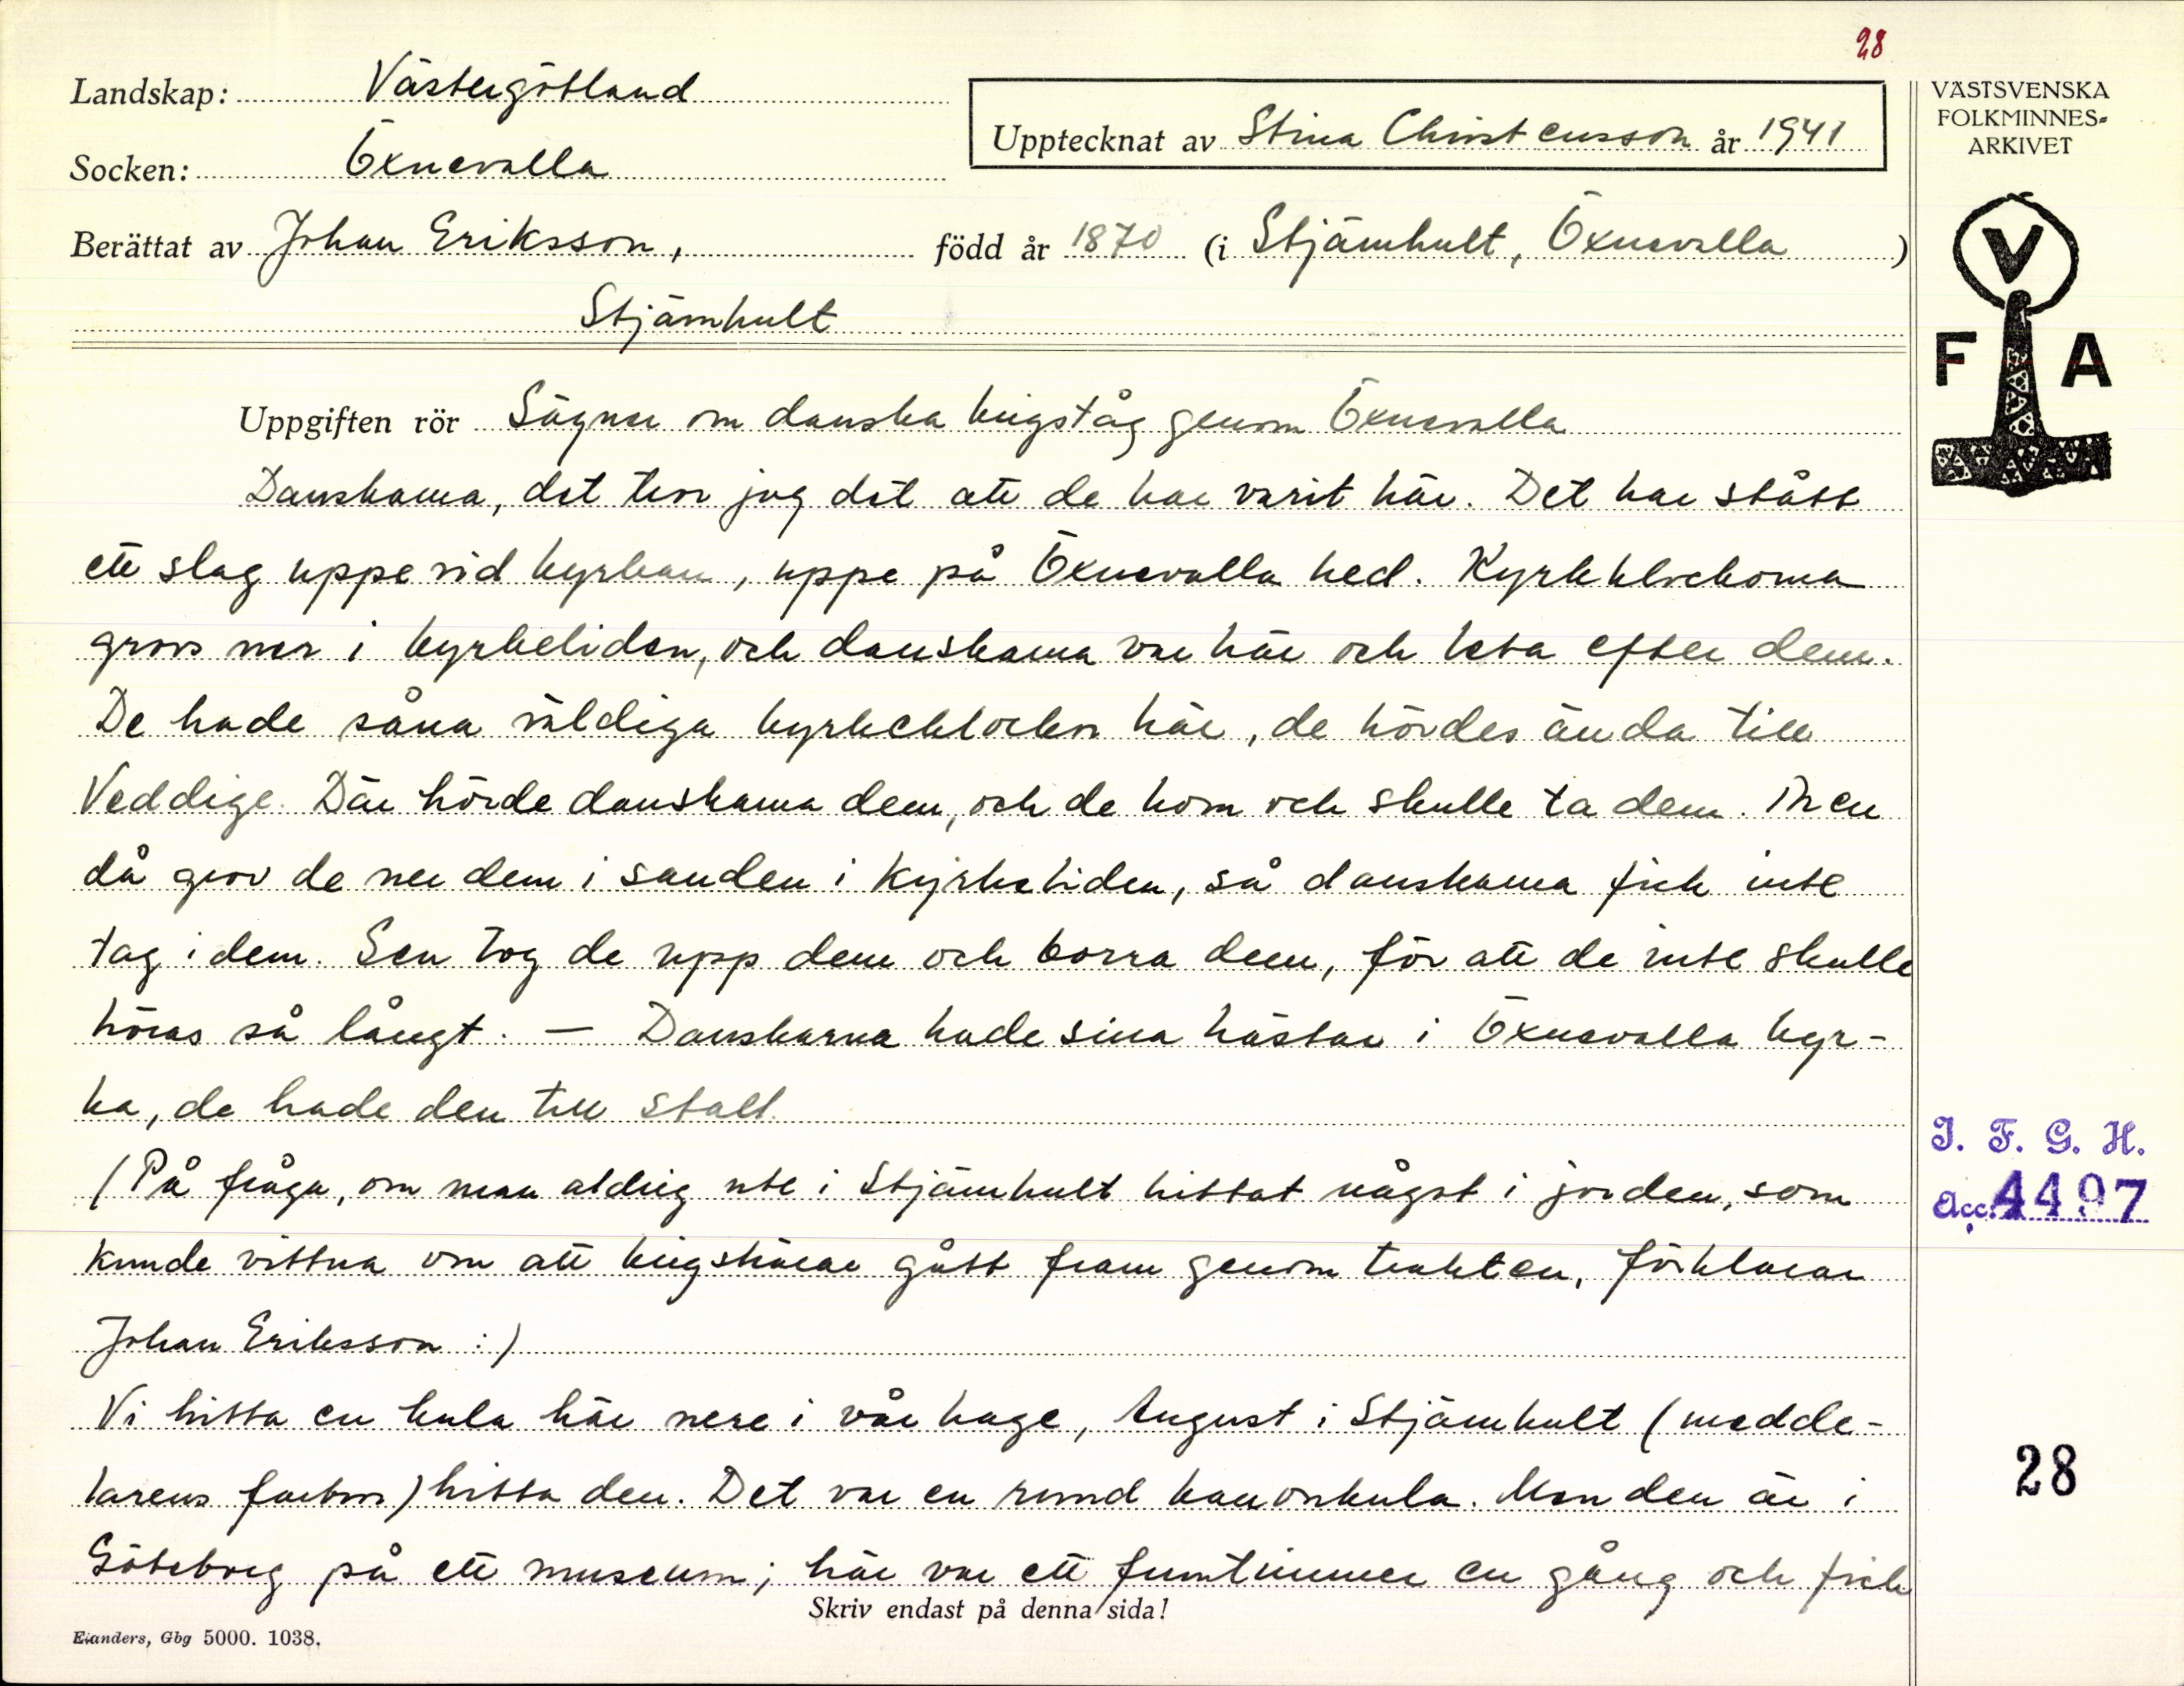 28
Landskap: Västergötland
Upptecknat av Stina Christensson år 1941
Socken: Öxnevalla
Berättat av Johan Eriksson, född år 1870 (i Stjämhult, Öxnevalla)
Stjämhult
VÄSTSVENSKA
FOLKMINNES-
ARKIVET
V
F A
Uppgiften rör Sägner om danska krigståg genom Öxnevalla
Danskarna, det tror jag det att de har varit här. Det har stått
ett slag uppe vid kyrkan, uppe på Öxnevalla hed. Kyrkklockorna
grovs ner i kyrkeliden, och danskarna var här och leta efter dem.
De hade såna väldiga kyrkeklockor här, de hördes ända till
Veddige. Där hörde danskarna dem, och de kom och skulle ta dem. Men
då grov de ner dem i sanden i kyrkeliden, så danskarna fick inte
tag i dem. Sen tog de upp dem och borra dem, för att de inte skulle
höras så långt. — Danskarna hade sina hästar i Öxnevalla kyr-
ka, de hade den till stall.
(På fråga, om man aldrig ute i Stjämhult hittat något i jorden, som
kunde vittna om att krigshärar gått fram genom trakten, förklarar
Johan Eriksson:)
Vi hitta en kula här nere i vår hage, August i Stjämhult (medde-
larens farbror) hitta den. Det var en rund kanonkula. Men den är i
Göteborg på ett museum; här var ett fruntimmer en gång och fick
Skriv endast på denna sida!
Elanders, Gbg 5000. 1038.
I. F. G. H.
Acc. 4497
28